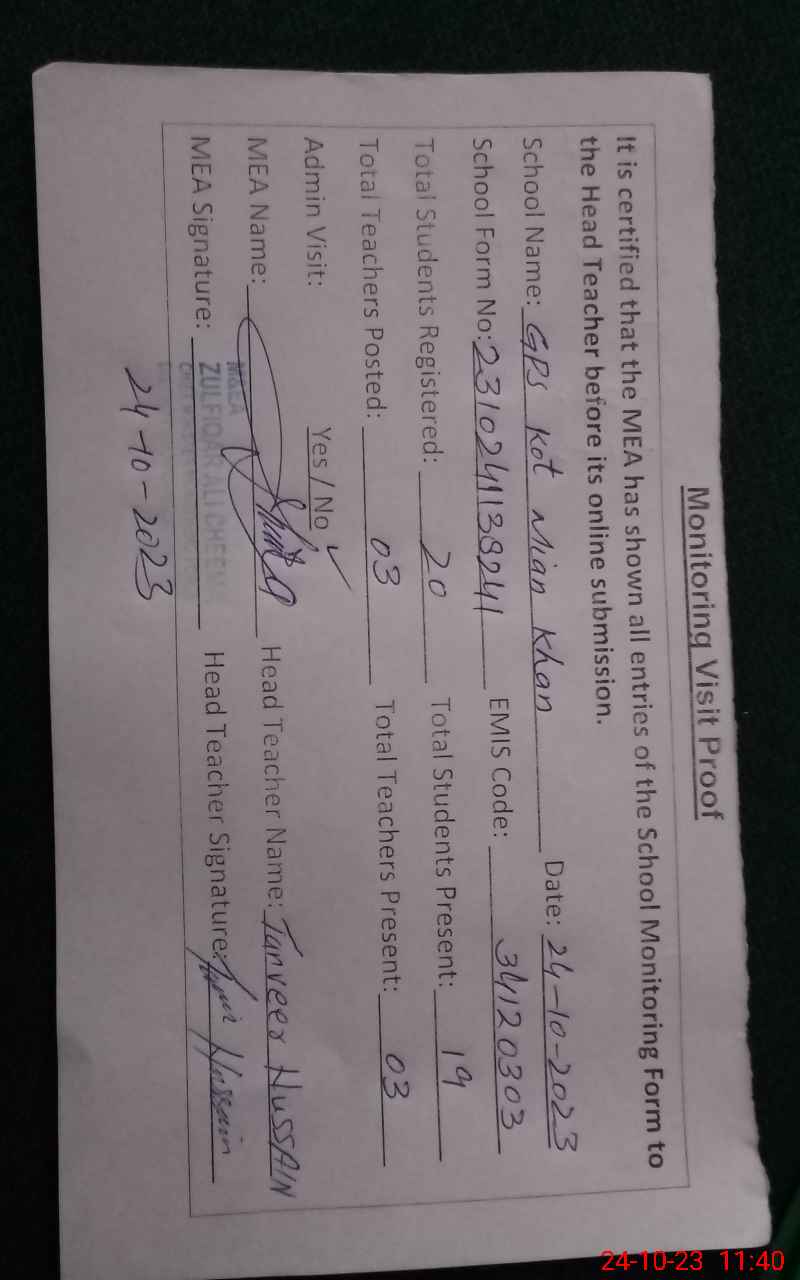 Monitoring Visit Proof
It is certified that the MEA has shown all entries of the School Monitoring Form to
the Head Teacher before its online submission.
School Name: GPS Kot Mian Khan Date: 24-10-2023
School Form No: 2310241138241 EMIS Code: 34120303
Total Students Registered: 20 Total Students Present: 19
Total Teachers Posted: 03 Total Teachers Present: 03
Admin Visit: Yes / No ✓
MEA Name: Head Teacher Name: Tanveer HUSSAIN
M&EA
ZULFIQAR ALI CHEEMA
MEA Signature: Head Teacher Signature: Hussain
24-10-2023
24-10-23 11:40